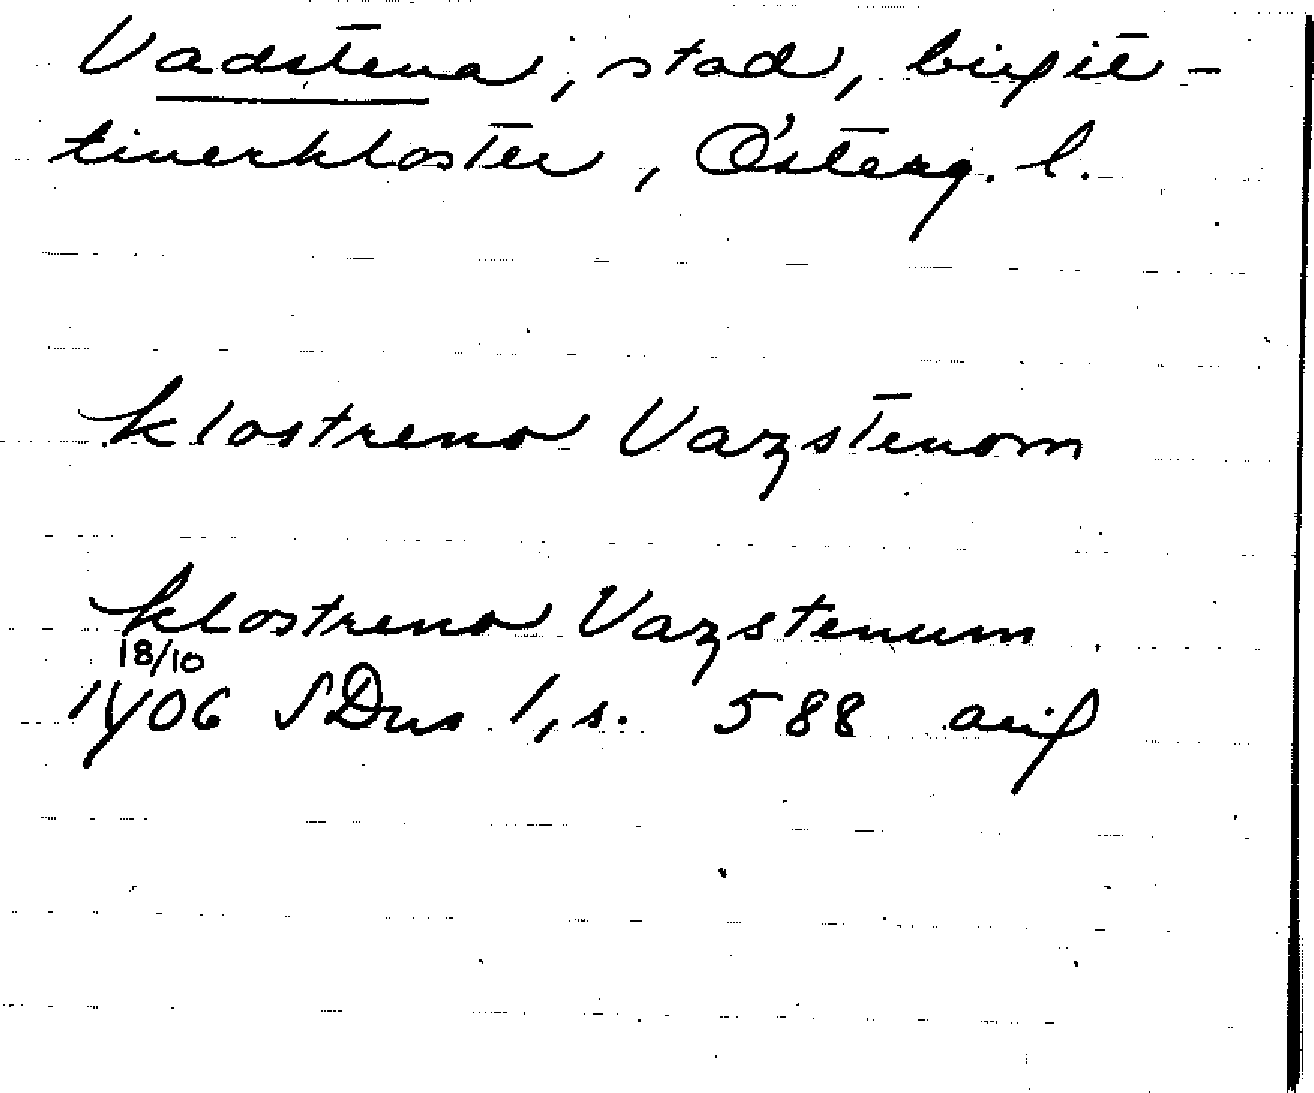 Vadstena, stad, birgit-
tinerkloster, Österg. l.
klostreno Vazstenom
klostreno Vazstenum
18/10
1406 SDns 1, s. 588